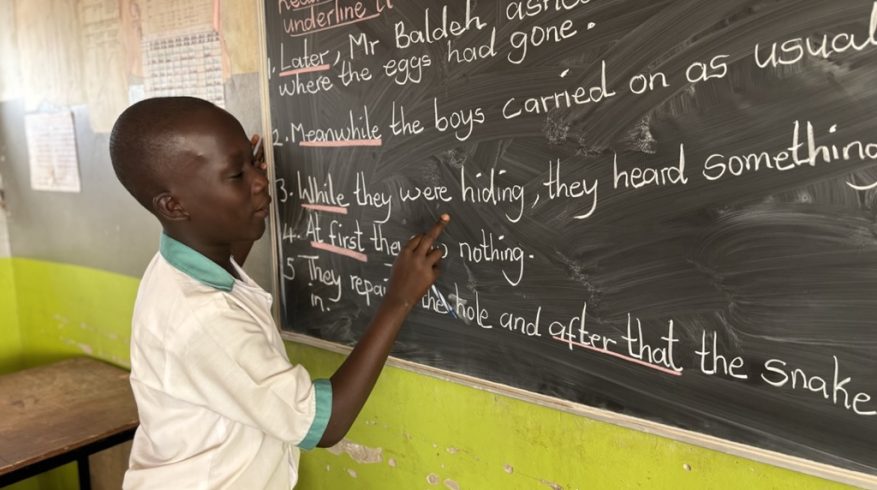 underline
1. Later, Mr Baldeh
where the eggs had gone.
2. Meanwhile the boys carried on as usual
3. While they were hiding, they heard something
4. At first nothing.
5 They the hole and after that the snake
in.